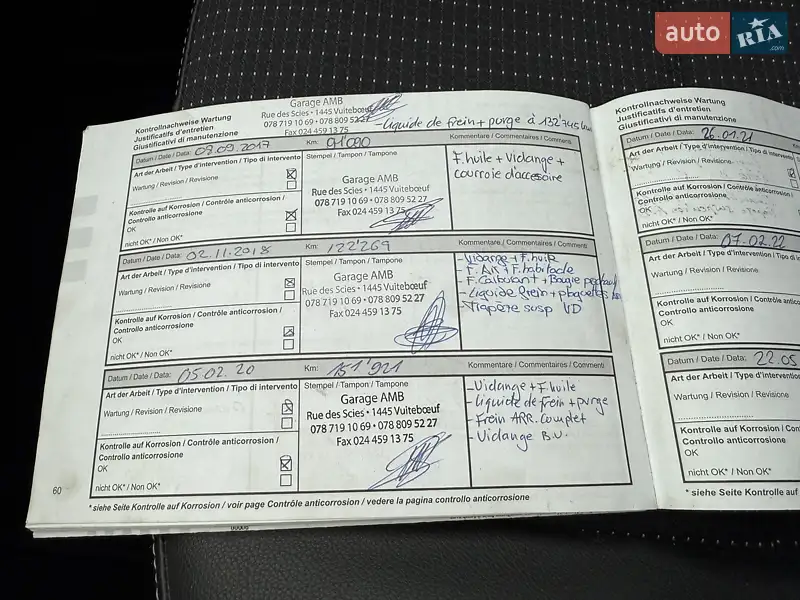 auto RIA .com
Kontrollnachweise Wartung
Justificatifs d'entretien
Giustificativi di manutenzione
Garage AMB
Rue des Scies • 1445 Vuitebœuf
078 719 10 69 • 078 809 52 27
Fax 024 459 13 75
-Liquide de frein + purge à 132'745 km
Datum / Date / Data: 08.09.2017 Km: 91'090 Kommentare / Commentaires / Commenti
Art der Arbeit / Type d'intervention / Tipo di intervento
Stempel / Tampon / Tampone
Wartung / Revision / Revisione
Garage AMB
Rue des Scies • 1445 Vuitebœuf
078 719 10 69 • 078 809 52 27
Fax 024 459 13 75
F.huile + Vidange +
courroie d'accesoire
Kontrolle auf Korrosion / Contrôle anticorrosion /
Controllo anticorrosione
OK
nicht OK* / Non OK*
Datum / Date / Data: 02.11.2018 Km: 122'269 Kommentare / Commentaires / Commenti
Art der Arbeit / Type d'intervention / Tipo di intervento
Stempel / Tampon / Tampone
Wartung / Revision / Revisione
Garage AMB
Rue des Scies • 1445 Vuitebœuf
078 719 10 69 • 078 809 52 27
Fax 024 459 13 75
-Vidange + F.huile
-F. Air + F.habitacle
-F. Calburant + Bougie
-Liquide frein + plaquettes
-Trapère susp VD
Kontrolle auf Korrosion / Contrôle anticorrosion /
Controllo anticorrosione
OK
nicht OK* / Non OK*
Datum / Date / Data: 05.02.20 Km: 151'921 Kommentare / Commentaires / Commenti
Art der Arbeit / Type d'intervention / Tipo di intervento
Stempel / Tampon / Tampone
Wartung / Revision / Revisione
Garage AMB
Rue des Scies • 1445 Vuitebœuf
078 719 10 69 • 078 809 52 27
Fax 024 459 13 75
-Vidange + F.huile
-Liquide de frein + purge
-Frein ARR. complet
-Vidange B.V.
Kontrolle auf Korrosion / Contrôle anticorrosion /
Controllo anticorrosione
OK
nicht OK* / Non OK*
60
* siehe Seite Kontrolle auf Korrosion / voir page Contrôle anticorrosion / vedere la pagina controllo anticorrosione
Kontrollnachweise Wartung
Justificatifs d'entretien
Giustificativi di manutenzione
Datum / Date / Data: 26.01.21
Art der Arbeit / Type d'intervention / Tipo di intervento
Wartung / Revision / Revisione
Kontrolle auf Korrosion / Contrôle anticorrosion
Controllo anticorrosione
OK
nicht OK* / Non OK*
Datum / Date / Data: 07.02.22
Art der Arbeit / Type d'intervention / Tipo di
Wartung / Revision / Revisione
Kontrolle auf Korrosion / Contrôle
Controllo anticorrosione
OK
nicht OK* / Non OK*
Datum / Date / Data: 22.05
Art der Arbeit / Type d'intervention
Wartung / Revision / Revisione
Kontrolle auf Korrosion / Contrôle
Controllo anticorrosione
OK
nicht OK* / Non OK*
* siehe Seite Kontrolle auf